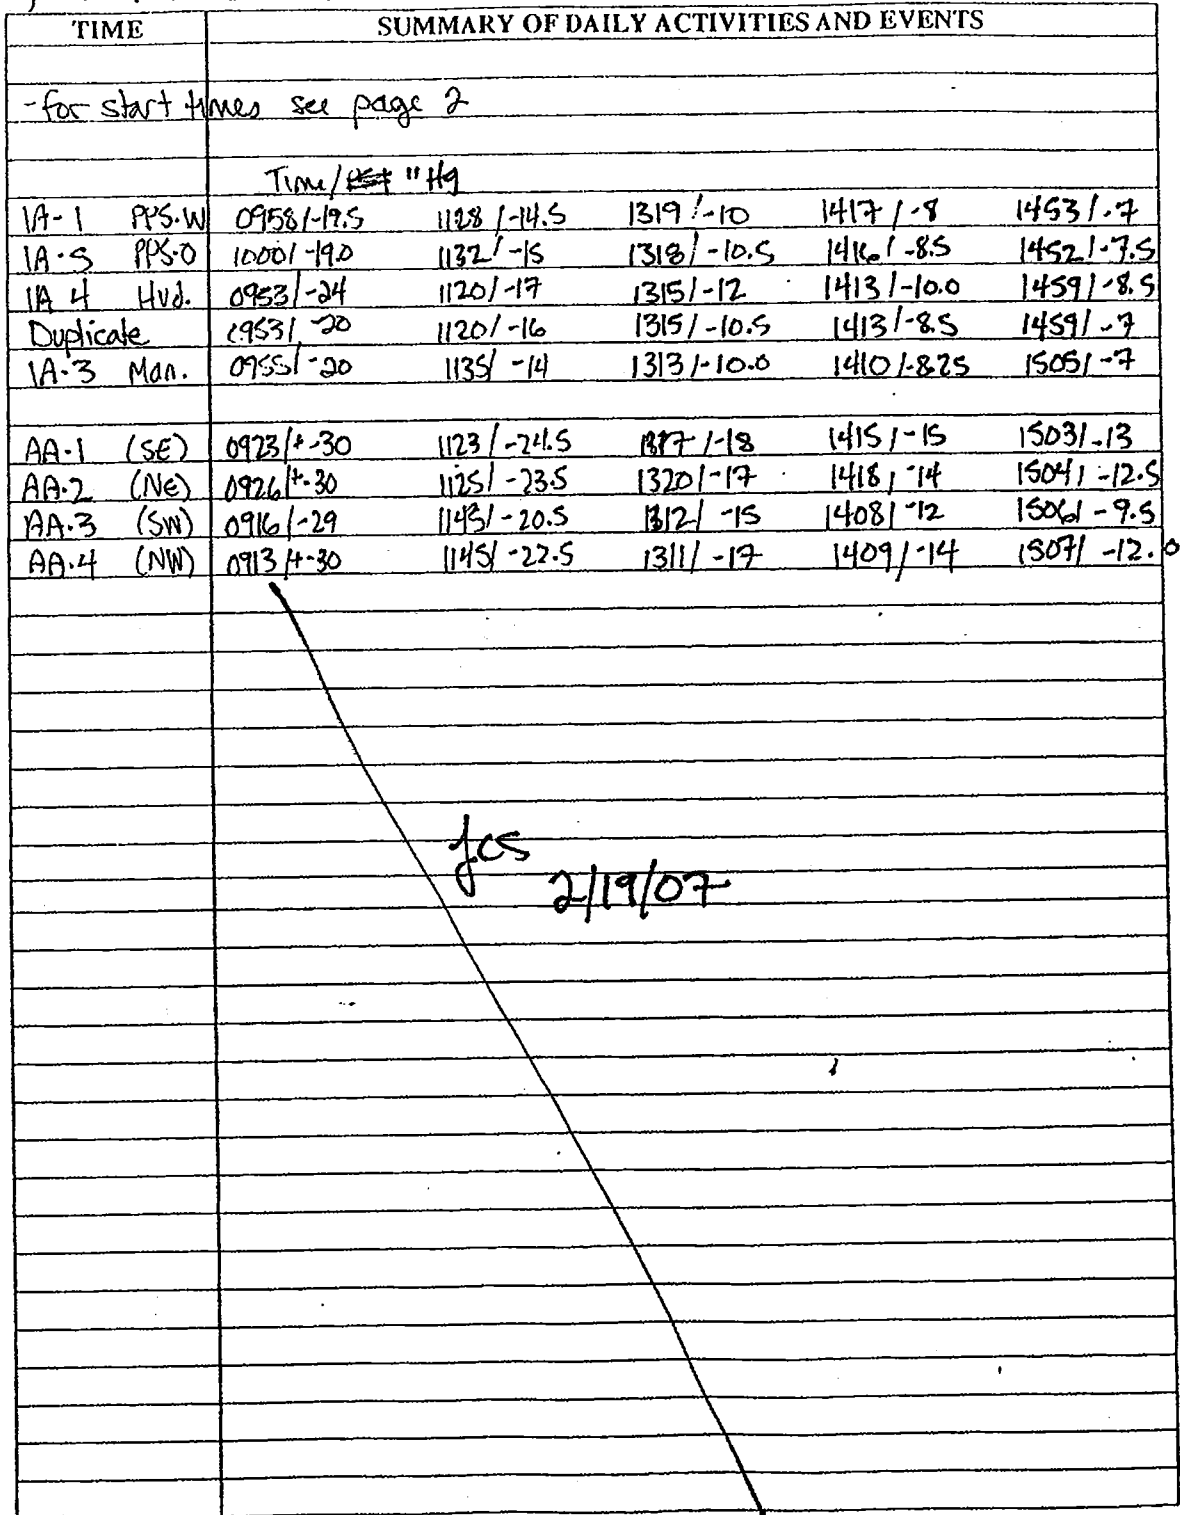 TIME SUMMARY OF DAILY ACTIVITIES AND EVENTS
-for start times see page 2
Time/ "Hg
IA-1 PPS-W 0958/-19.5 1128/-14.5 1319/-10 1417/-8 1453/-7
IA-5 PPS-O 1000/-19.0 1132/-15 1318/-10.5 1416/-8.5 1452/-7.5
IA 4 Hvd. 0953/-24 1120/-17 1315/-12 1413/-10.0 1459/-8.5
Duplicate 0953/-20 1120/-16 1315/-10.5 1413/-8.5 1459/-7
IA-3 Man. 0955/-20 1135/-14 1313/-10.0 1410/-8.25 1505/-7
AA-1 (SE) 0923/+-30 1123/-24.5 /-18 1415/-15 1503/-13
AA-2 (NE) 0926/+-30 1125/-23.5 1320/-17 1418/-14 1504/-12.5
AA-3 (SW) 0916/-29 1143/-20.5 1312/-15 1408/-12 1506/-9.5
AA-4 (NW) 0913/+-30 1145/-22.5 1311/-17 1409/-14 1507/-12.0
jcs
2/19/07